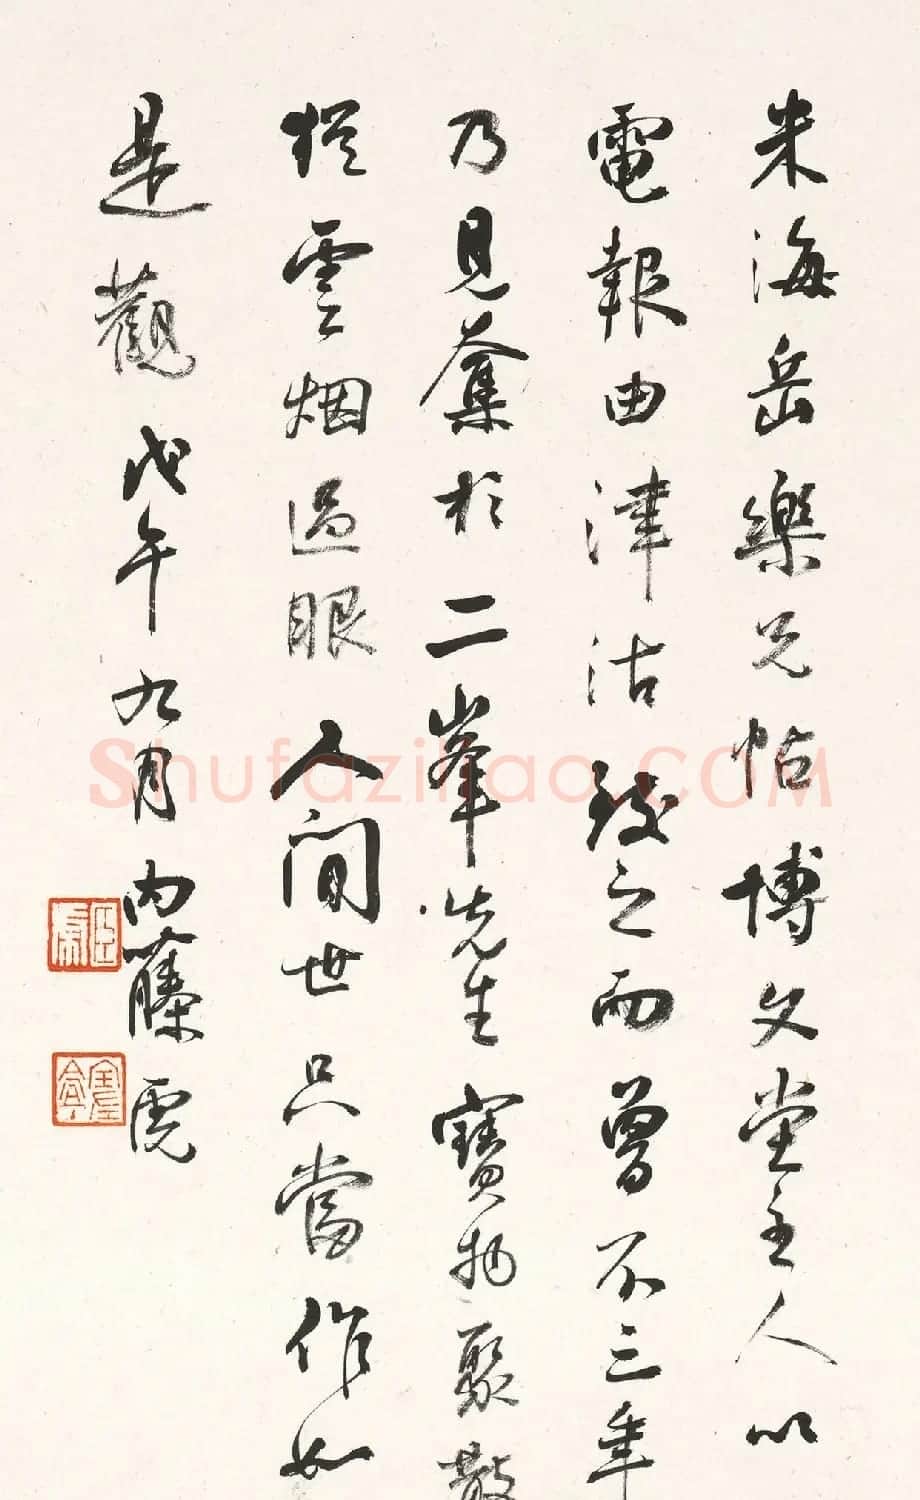 米海岳樂兄帖博文堂主人以
電報由津沽致之而曾不三年
乃見奪於二峯先生寶物聚散
猶雲烟過眼人間世只當作如
是觀戊午九月內藤虎
Shufazihao.COM